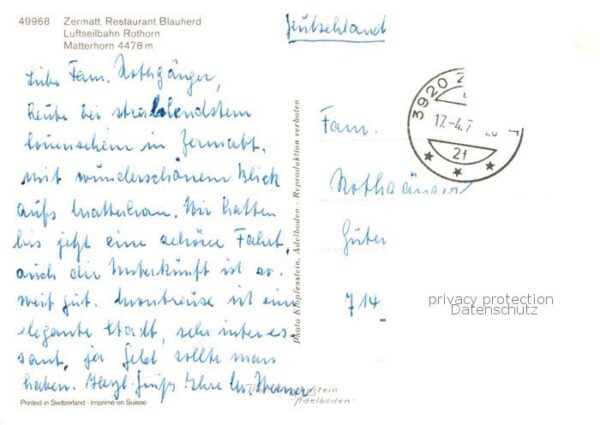 49968 Zermatt. Restaurant Blauherd
Luftseilbahn Rothorn
Matterhorn 4478 m
Liebe Fam. Rothgänger,
Heute bei strahlendstem
Sonnenschein in Zermatt,
mit wunderschönem Blick
aufs Matterhorn. Wir hatten
bis jetzt eine schöne Fahrt,
auch die Unterkünft ist so-
weit gut. Montreux ist eine
elegante Stadt, sehr interes-
sant, ja Geld sollte man
haben. Herzl. Grüße Ihre
Printed in Switzerland - Imprimé en Suisse
Photo Klopfenstein, Adelboden - Reproduktion verboten
Deutschland
3920 Z T
17.-4.7
2f
Fam.
Rothgänger
Güter
714
privacy protection
Datenschutz
Adelboden